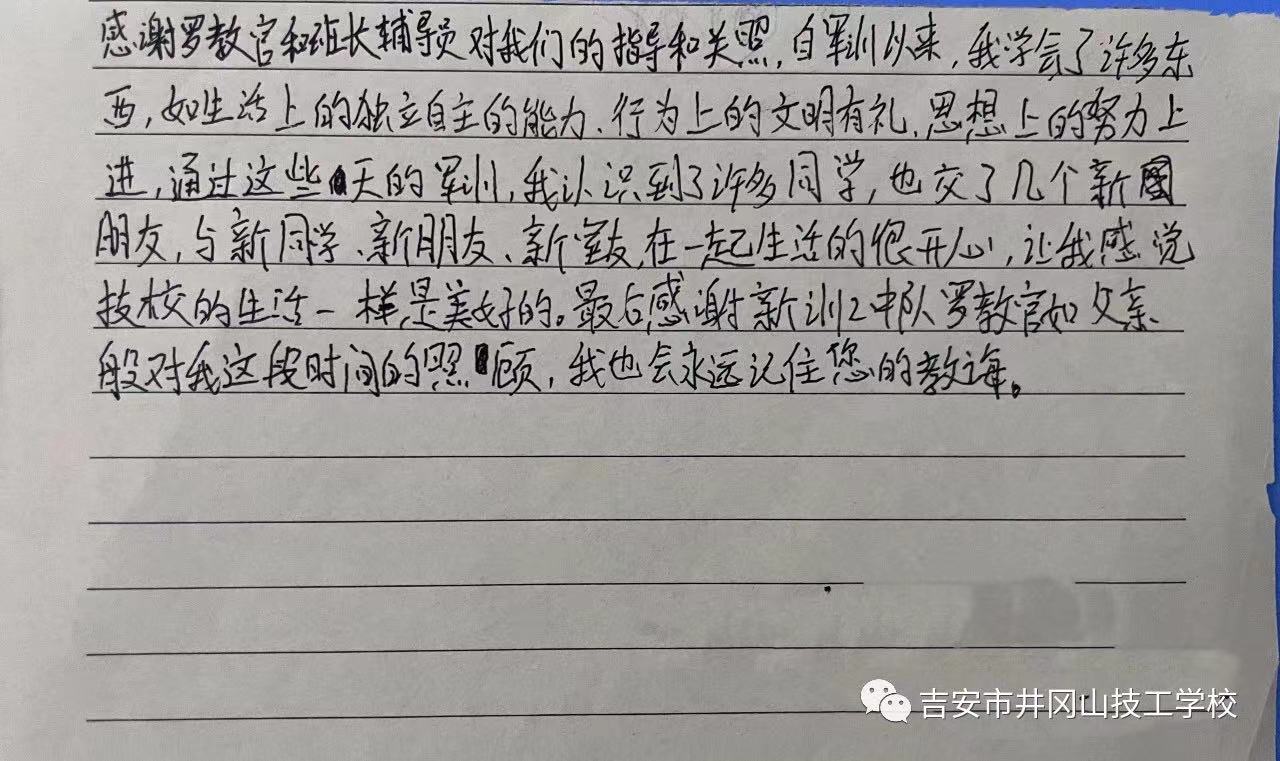 感谢罗教官和班长辅导员对我们的指导和关照,自军训以来,我学会了许多东
西,如生活上的独立自主的能力、行为上的文明有礼、思想上的努力上
进,通过这些天的军训,我认识到了许多同学,也交了几个新
朋友,与新同学、新朋友、新室友,在一起生活的很开心,让我感觉
技校的生活一样是美好的。最后感谢新训2中队罗教官如父亲
般对我这段时间的照顾,我也会永远记住您的教诲。
吉安市井冈山技工学校